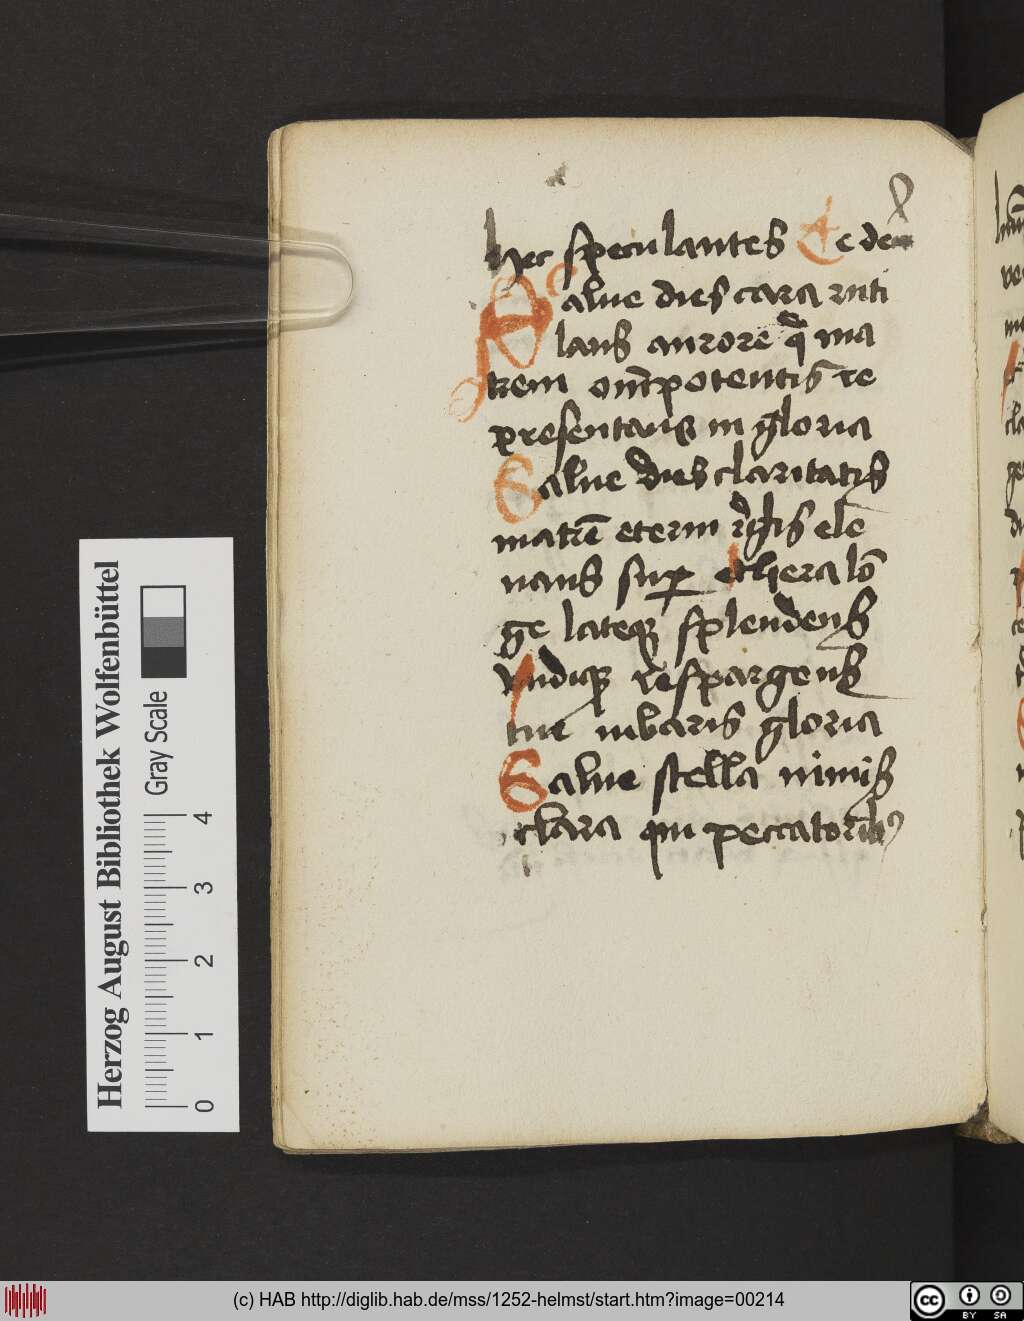 hec speculantes Te deū
Salue dies cara ruti
lans aurore q̄ ma
trem om̄potentis re
presentans in gloria
Salue dies claritatis
matrē eterni regis ele
uans sup ethera lō
ge lateq; splendens
vndiq; respargens
tue iubaris gloria
Salue stella nimis
clara qui peccatorib9
Herzog August Bibliothek Wolfenbüttel
Gray Scale
0 1 2 3 4
(c) HAB http://diglib.hab.de/mss/1252-helmst/start.htm?image=00214
cc BY SA